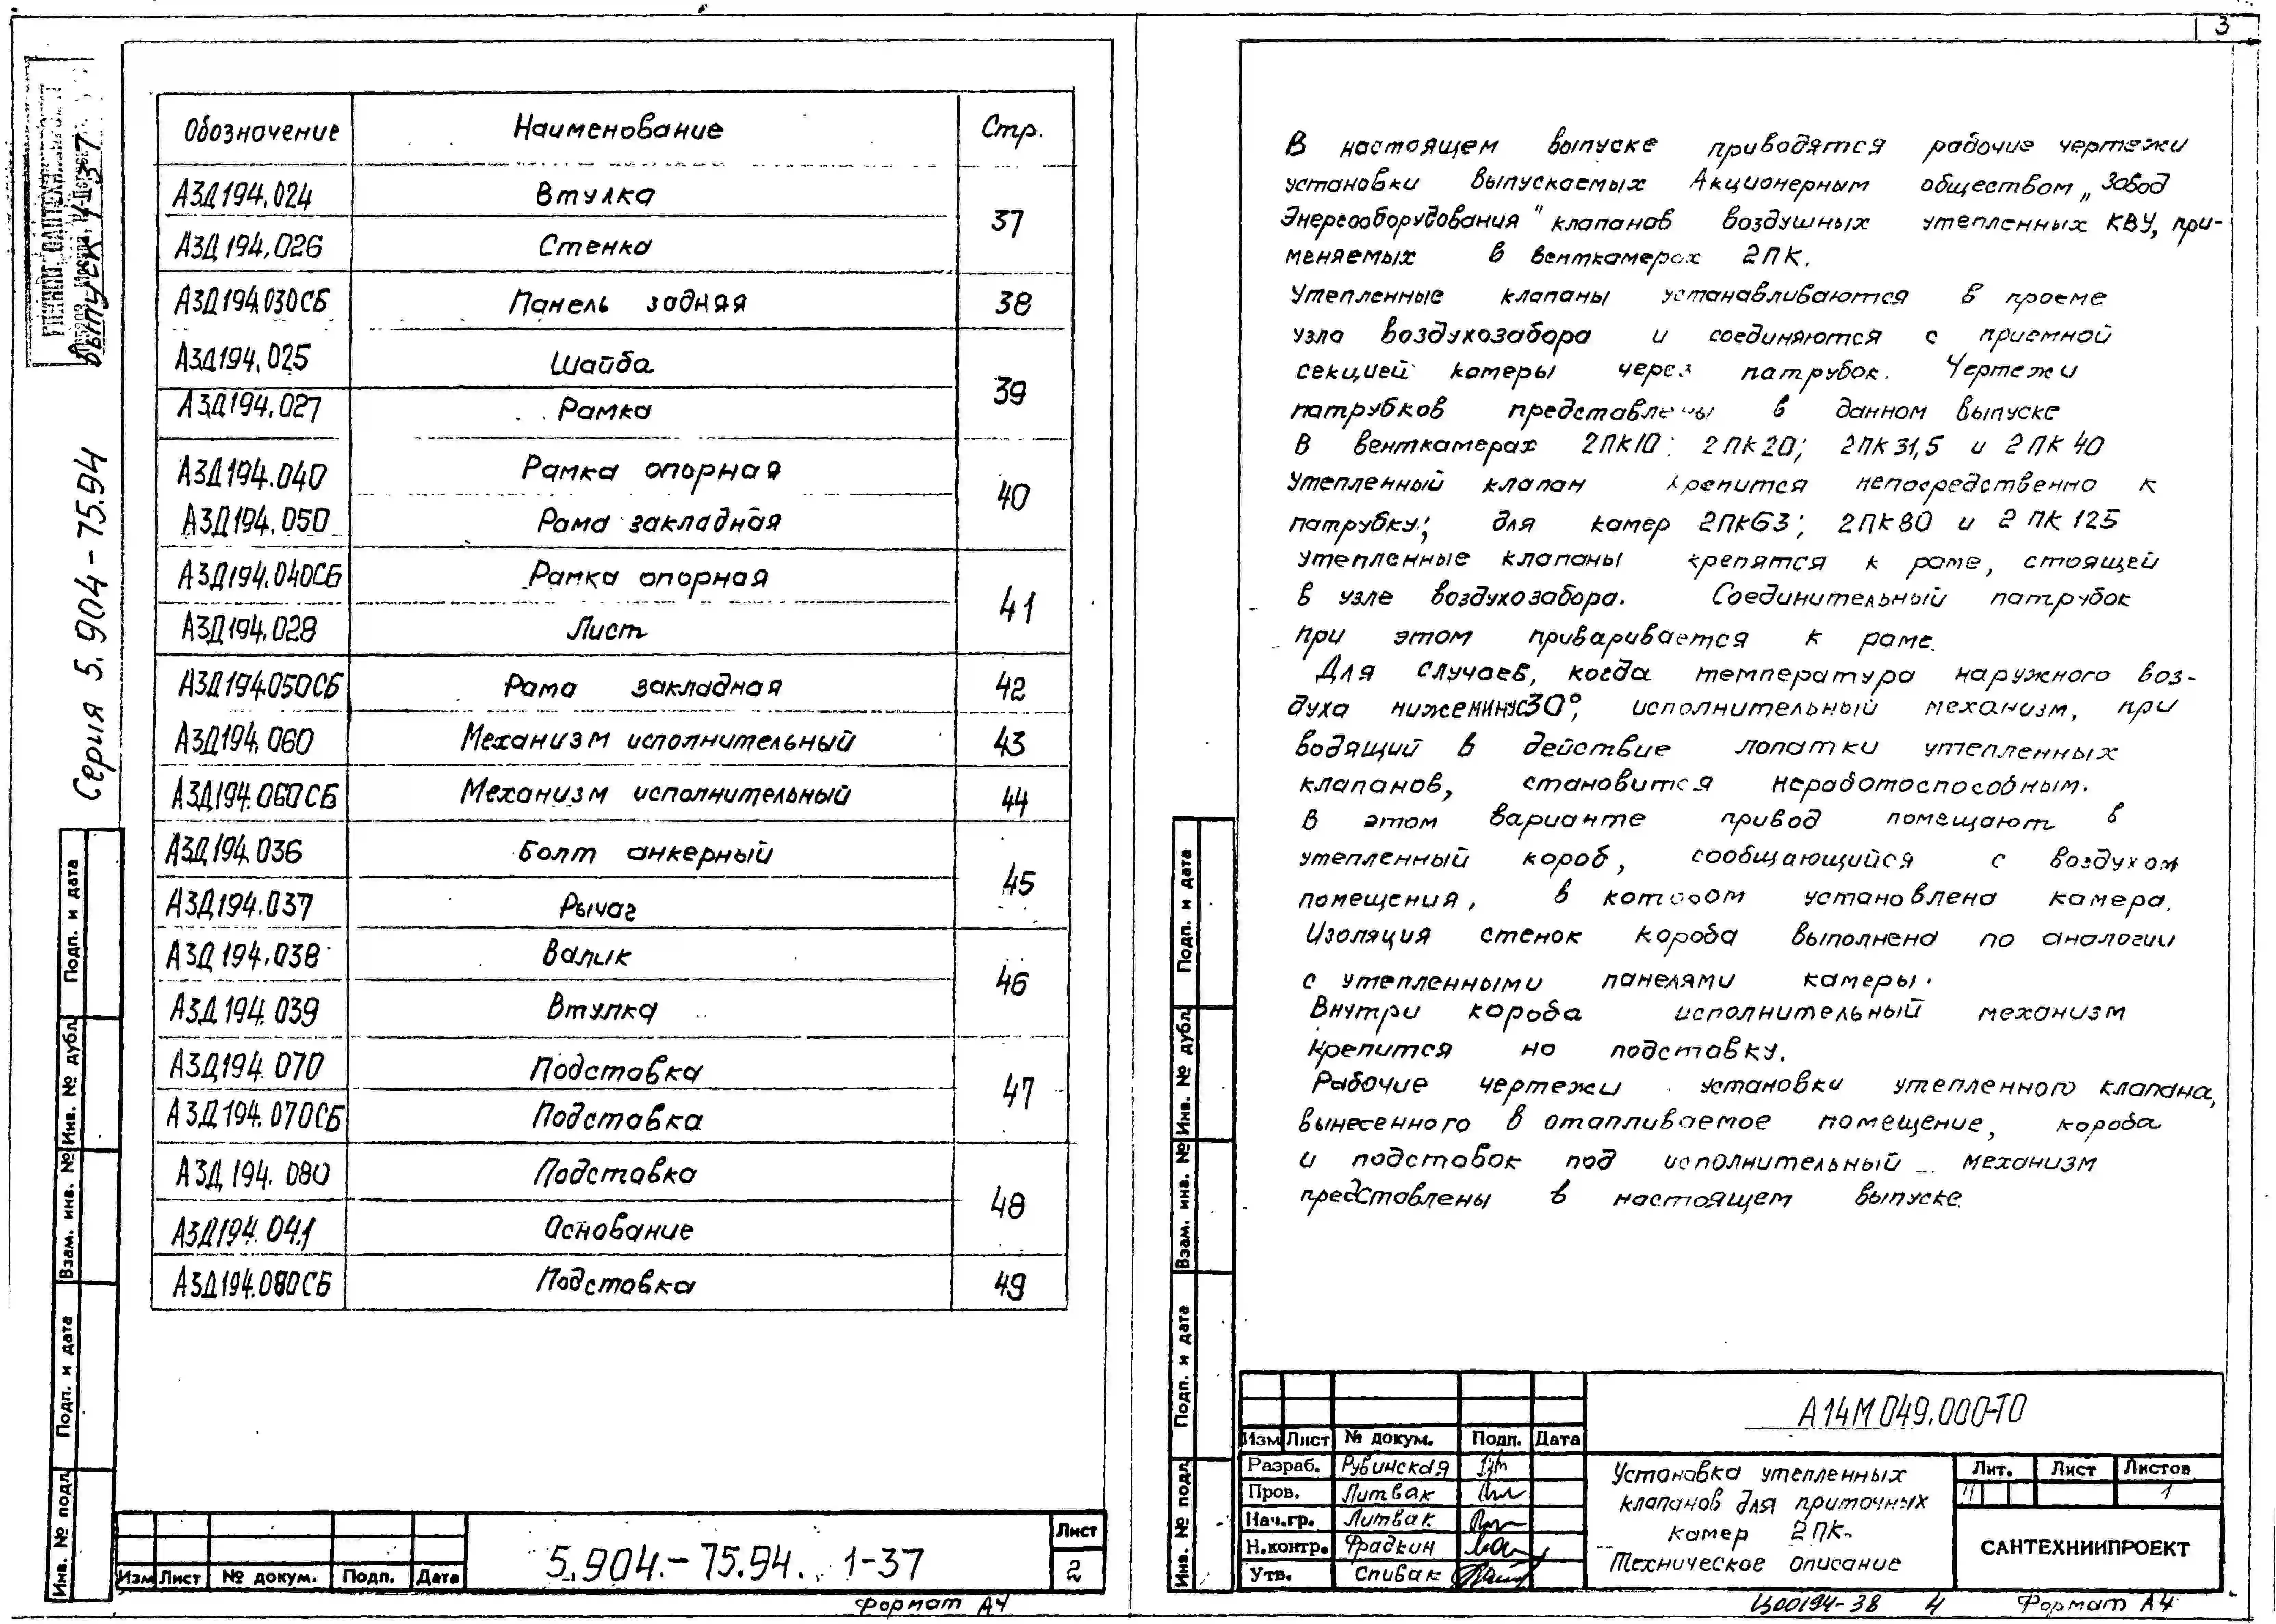 Серия 5.904-75.94
выпуск 1-37
Обозначение Наименование Стр.
АЗД194.024 Втулка 37
АЗД194.026 Стенка
АЗД194.030СБ Панель задняя 38
АЗД194.025 Шайба 39
АЗД194.027 Рамка
АЗД194.040 Рамка опорная 40
АЗД194.050 Рама закладная
АЗД194.040СБ Рамка опорная 41
АЗД194.028 Лист
АЗД194.050СБ Рама закладная 42
АЗД194.060 Механизм исполнительный 43
АЗД194.060СБ Механизм исполнительный 44
АЗД194.036 Болт анкерный 45
АЗД194.037 Рычаг
АЗД194.038 Валик 46
АЗД194.039 Втулка
АЗД194.070 Подставка 47
АЗД194.070СБ Подставка
АЗД194.080 Подставка 48
АЗД194.041 Основание
АЗД194.080СБ Подставка 49
Подп. и дата
Инв. № дубл
Взам. инв. №
Подп. и дата
Инв. № подл
Изм Лист № докум. Подп. Дата
5.904.-75.94. 1-37
Лист
2
Формат А4
3
В настоящем выпуске приводятся рабочие чертежи
установки выпускаемых Акционерным обществом „Завод
Энергооборудования" клапанов воздушных утепленных КВУ, при-
меняемых в венткамерах 2ПК.
Утепленные клапаны устанавливаются в проеме
узла воздухозабора и соединяются с приемной
секцией камеры через патрубок. Чертежи
патрубков представлены в данном выпуске
В венткамерах 2ПК10; 2ПК20; 2ПК31,5 и 2ПК40
Утепленный клапан крепится непосредственно к
патрубку; для камер 2ПК63; 2ПК80 и 2ПК125
утепленные клапаны крепятся к раме, стоящей
в узле воздухозабора. Соединительный патрубок
при этом приваривается к раме.
Для случаев, когда температура наружного воз-
духа ниже минус 30°, исполнительный механизм, при
водящий в действие лопатки утепленных
клапанов, становится неработоспособным.
В этом варианте привод помещают в
утепленный короб, сообщающийся с воздухом
помещения, в котором установлена камера.
Изоляция стенок короба выполнена по аналогии
с утепленными панелями камеры.
Внутри короба исполнительный механизм
крепится на подставку.
Рабочие чертежи установки утепленного клапана,
вынесенного в отапливаемое помещение, короба
и подставок под исполнительный механизм
представлены в настоящем выпуске.
Подп. и дата
Инв. № дубл
Взам. инв. №
Подп. и дата
Инв. № подл
А14М049.000-ТО
Изм Лист № докум. Подп. Дата
Разраб. Рубинская
Пров. Литвак
Нач.гр. Литвак
Н.контр. Фрадкин
Утв. Спивак
Установка утепленных
клапанов для приточных
камер 2ПК.
Техническое описание
Лит. Лист Листов
1
САНТЕХНИИПРОЕКТ
Ц00194-38 4 Формат А4